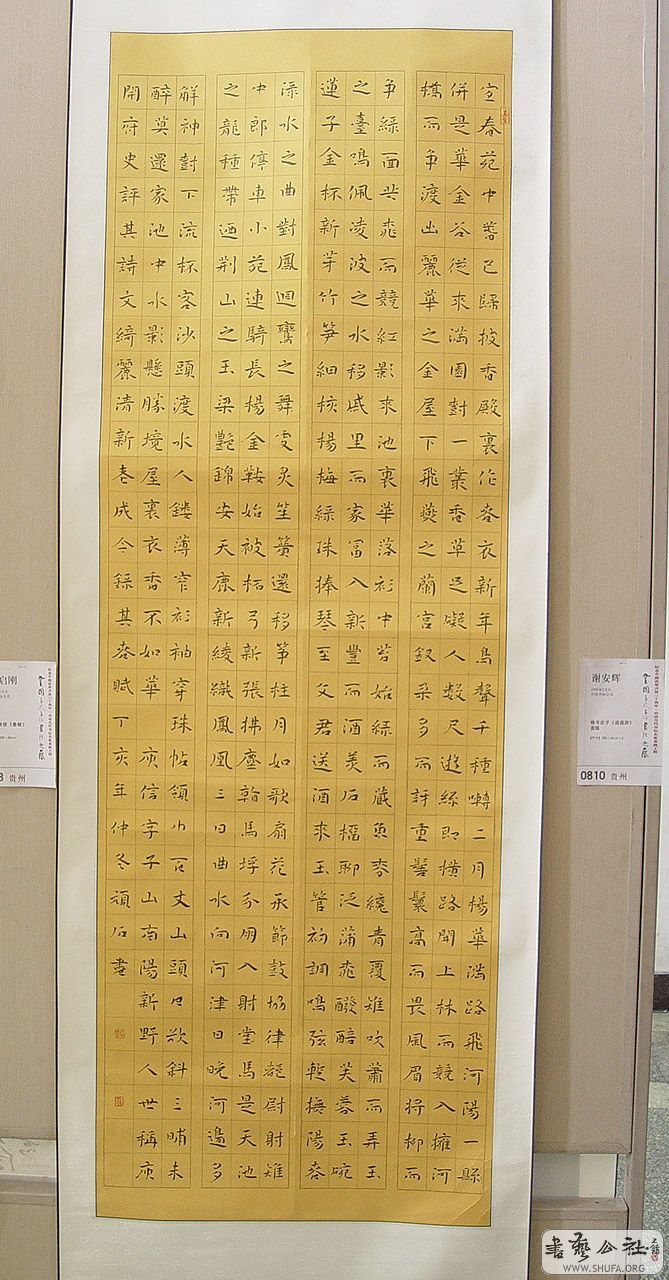 宜春苑中春已歸披香殿裏作春衣新年鳥聲千種囀二月楊華滿路飛河陽一縣
併是華金谷從來滿園對一叢香草足礙人數尺遊絲即橫路開上林而競入擁河
橋而争渡出麗華之金屋下飛燕之蘭宮釵朵多而訝重髻鬟高而畏風眉將柳而
争綠面共桃而競紅影來池裏華落衫中苔始綠而藏魚麥纔青覆雉吹簫而弄玉
之臺鳴佩凌波之水移戚里而家富入新豐而酒美石榴聊泛蒲桃醱醅芙蓉玉碗
蓮子金杯新芽竹笋細核楊梅綠珠捧琴至文君送酒來玉管初調鳴弦暫撫陽春
渌水之曲對鳳迴鸞之舞更炙笙簧還移筝柱月如歌扇花承節鼓協律都尉射雉
中郎停車小苑連騎長楊金鞍始被柘弓新張拂塵看馬埒分朋入射堂馬是天池
之龍種帶迺荊山之玉梁艷錦安天鹿新綾織鳳凰三日曲水向河津日晚河邊多
解神對下流杯客沙頭渡水人鏤薄窄衫袖穿珠帖領巾百丈山頭日欲斜三晡未
醉莫還家池中水影懸勝境屋裏衣香不如華 庾信字子山南陽新野人世稱庾
開府史評其詩文綺麗清新老成今録其春賦丁亥年仲冬頑石書
启刚
贵州
谢安辉
楷书庄子《逍遥游》
0810 贵州
書藝公社
WWW.SHUFA.ORG